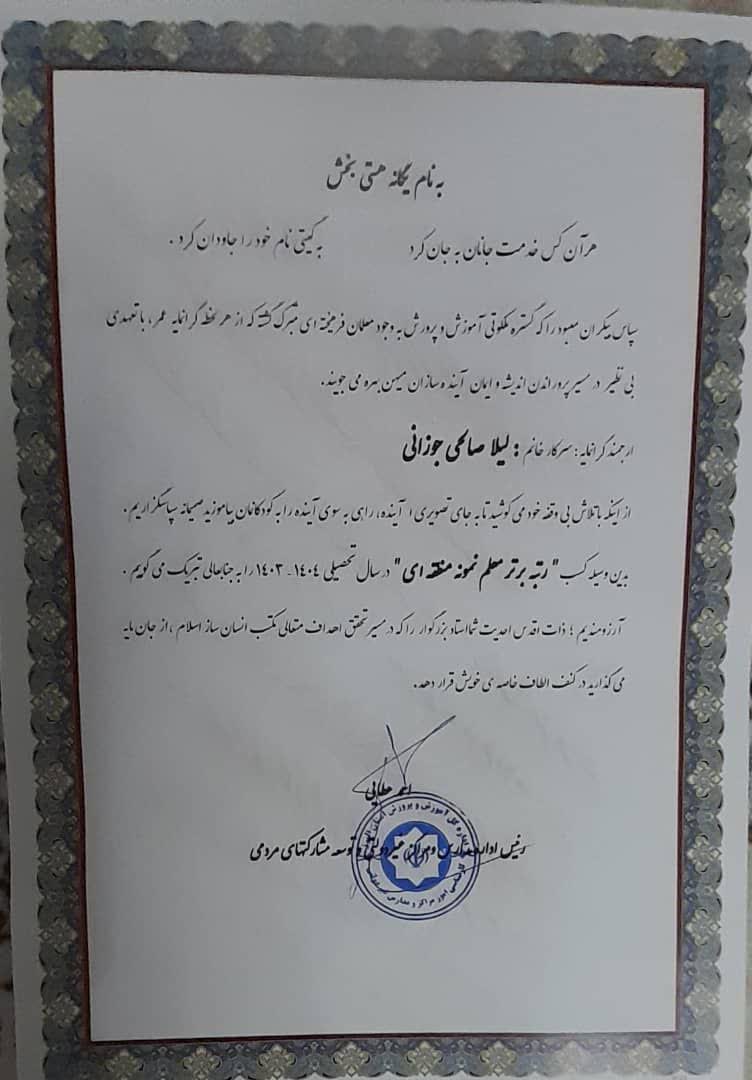 به نام یگانه هستی بخش
هر آن کس خدمت جانان به جان کرد به گیتی نام خود را جاودان کرد .
سپاس بیکران معبود را که گستره ملکوتی آموزش و پرورش به وجود معلمان فرهیخته ای متبرک گشته که از هر لحظه گرانمایه عمر، با تعهدی
بی نظیر در مسیر پروراندن اندیشه و ایمان آینده سازان میهن بهره می جویند.
ارجمند گرانمایه: سرکار خانم : لیلا صالحی جوزانی
از اینکه با تلاش بی وقفه خود می کوشید تا به جای تصویری ا آینده، راهی به سوی آینده را به کودکانمان بیاموزید صمیمانه سپاسگزاریم.
بدین وسیله کسب " رتبه برتر معلم نمونه منطقه ای " در سال تحصیلی ۱۴۰۴ـ ۱۴۰۳ را به جنابعالی تبریک می گویم .
آرزومندیم ؛ ذات اقدس احدیت شما استاد بزرگوار را که در مسیر تحقق اهداف متعالی مکتب انسان ساز اسلام ، از جان مایه
می گذارید در کنف الطاف خاصه ی خویش قرار دهد.
عطایی
رئیس اداره مدارس و مراکز غیردولتی و توسعه مشارکتهای مردمی
اداره کل آموزش و پرورش استان
امور مراکز و مدارس غیردولتی